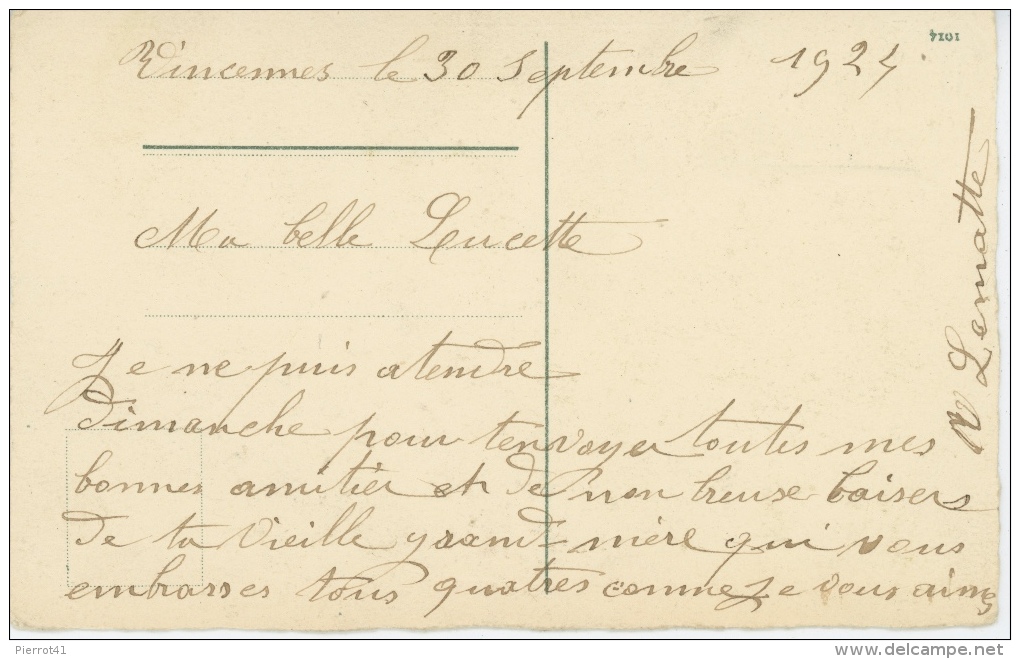 Vincennes le 30 Septembre 1924
1014
Ma belle Lucette
Je ne puis atendre
dimanche pour tenvoyer toutes mes
bonnes amitier et de nonbreuse baisers
de ta vieille grand-mère qui vous
embrasses tous quatres comme Je vous aimes
Lematte
Pierrot41
delcampe.net